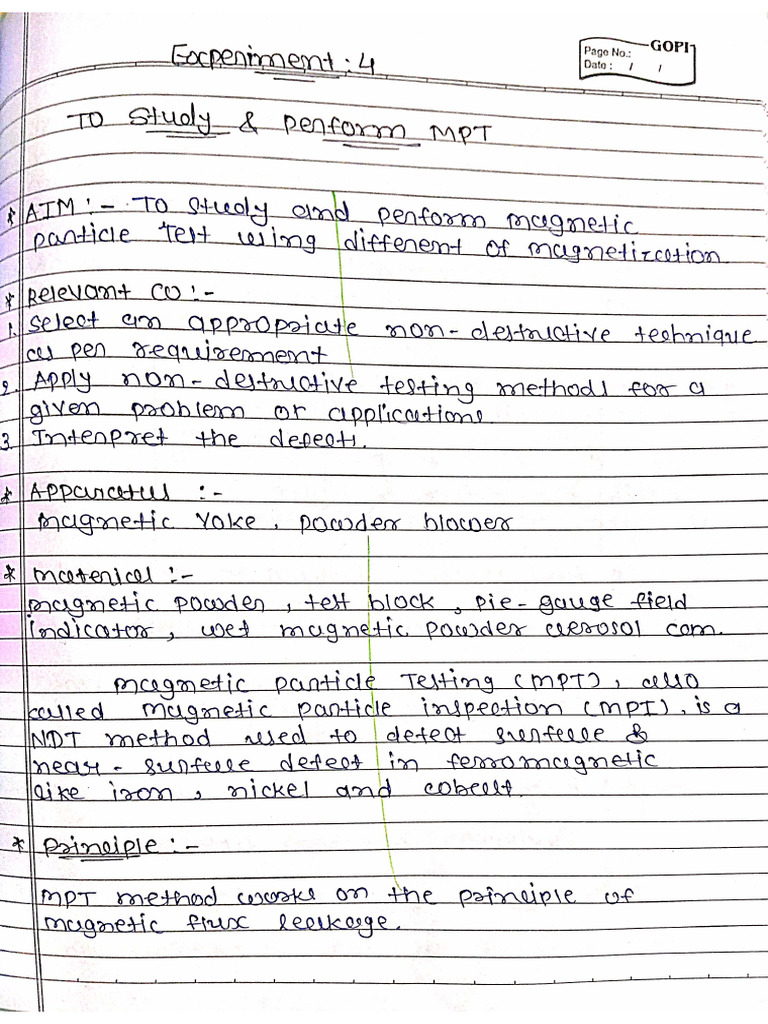 Page No.: GOPI
Date : / /
Experiment : 4
TO Study & Perform MPT
* AIM :- To study and perform magnetic
particle Test using different of magnetization.
* Relevant CO :-
1. Select an appropriate non-destructive technique
as per requirement
2. Apply non-destructive testing methods for a
given problem or applications.
3. Interpret the defects.
* Apparatus :-
magnetic Yoke, powder blower
* material :-
magnetic powder, test block, pie-gauge field
indicator, wet magnetic powder aerosol can.
magnetic particle Testing (MPT), also
called magnetic particle inspection (MPI), is a
NDT method used to detect surface &
near-surface defect in ferromagnetic
like iron, nickel and cobalt.
* Principle :-
MPT method works on the principle of
magnetic flux leakage.